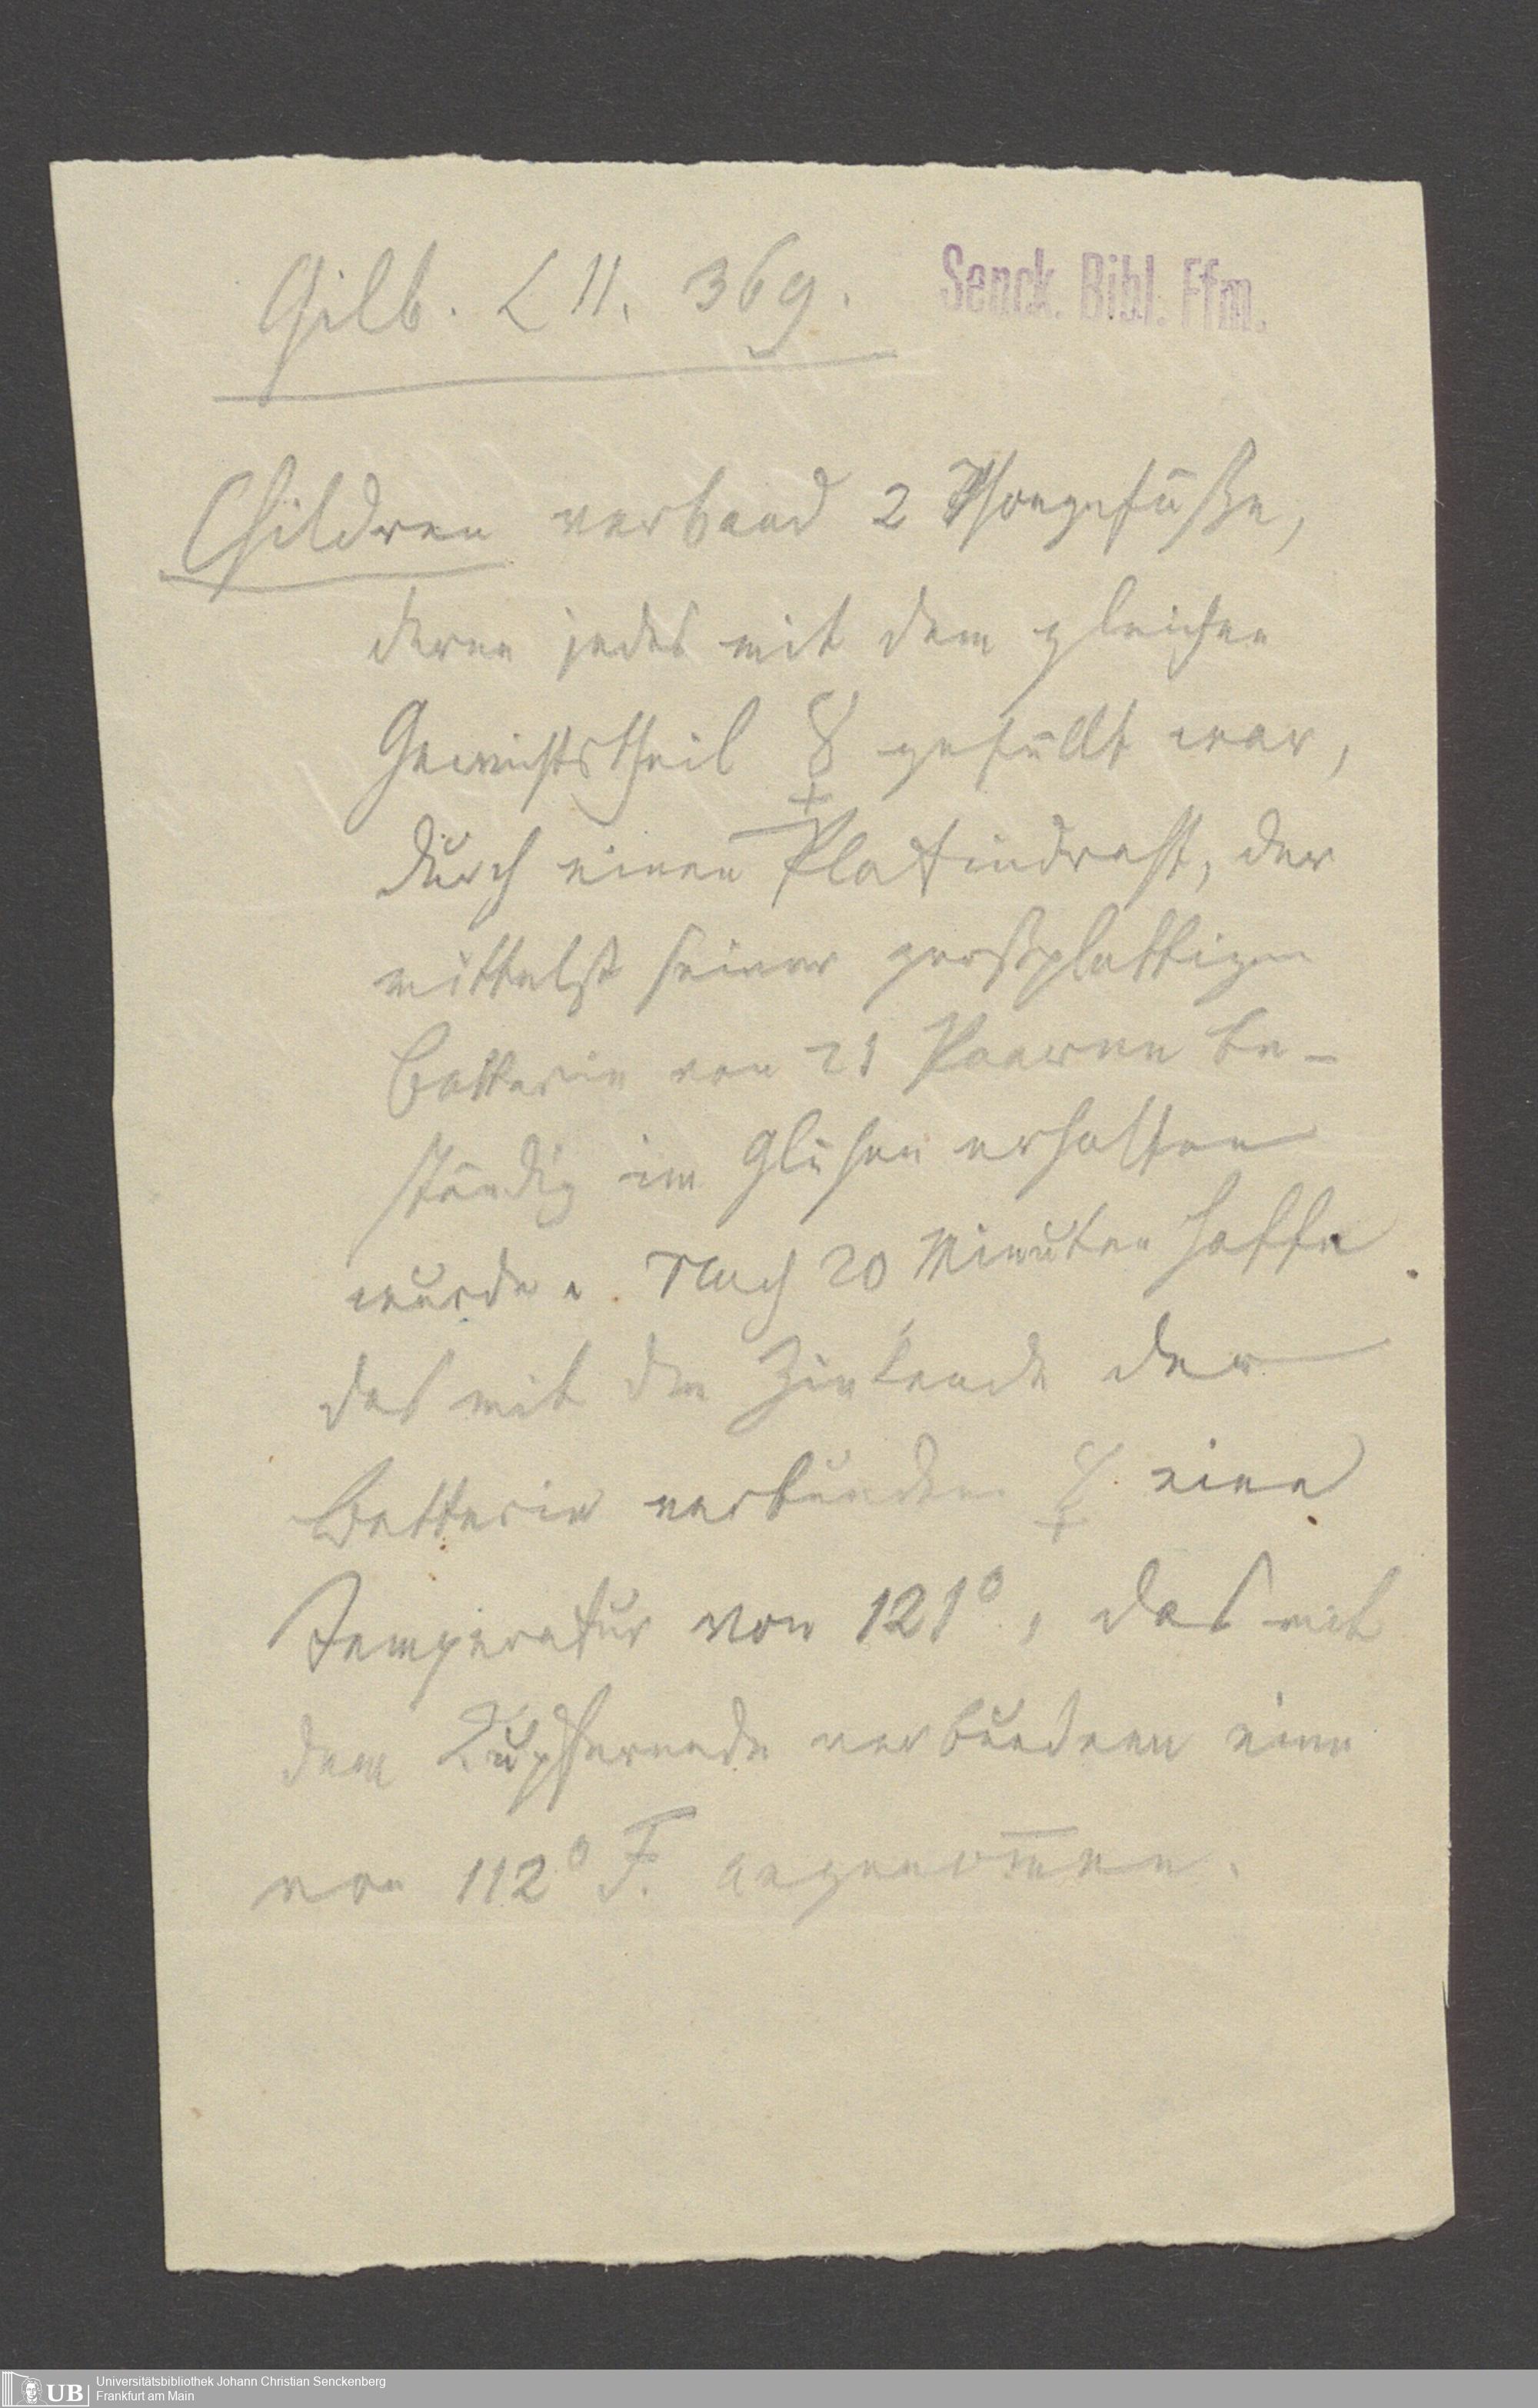 Gilb. LII. 369.
Senck. Bibl. Ffm.
Children verband 2 Thongefäße,
deren jedes mit dem gleichen
Gewichtstheil ☿ gefüllt war,
durch einen Platindraht, der
mittelst seiner großplattigen
Batterie von 21 Paaren be-
ständig im Glühen erhalten
wurde. Nach 20 Minuten hatte
das mit dem Zinkende der
Batterie verbundene ☿ eine
Temperatur von 121°, das mit
dem Kupferende verbundene eine
von 112° F. angenom̅en.
UB
Universitätsbibliothek Johann Christian Senckenberg
Frankfurt am Main